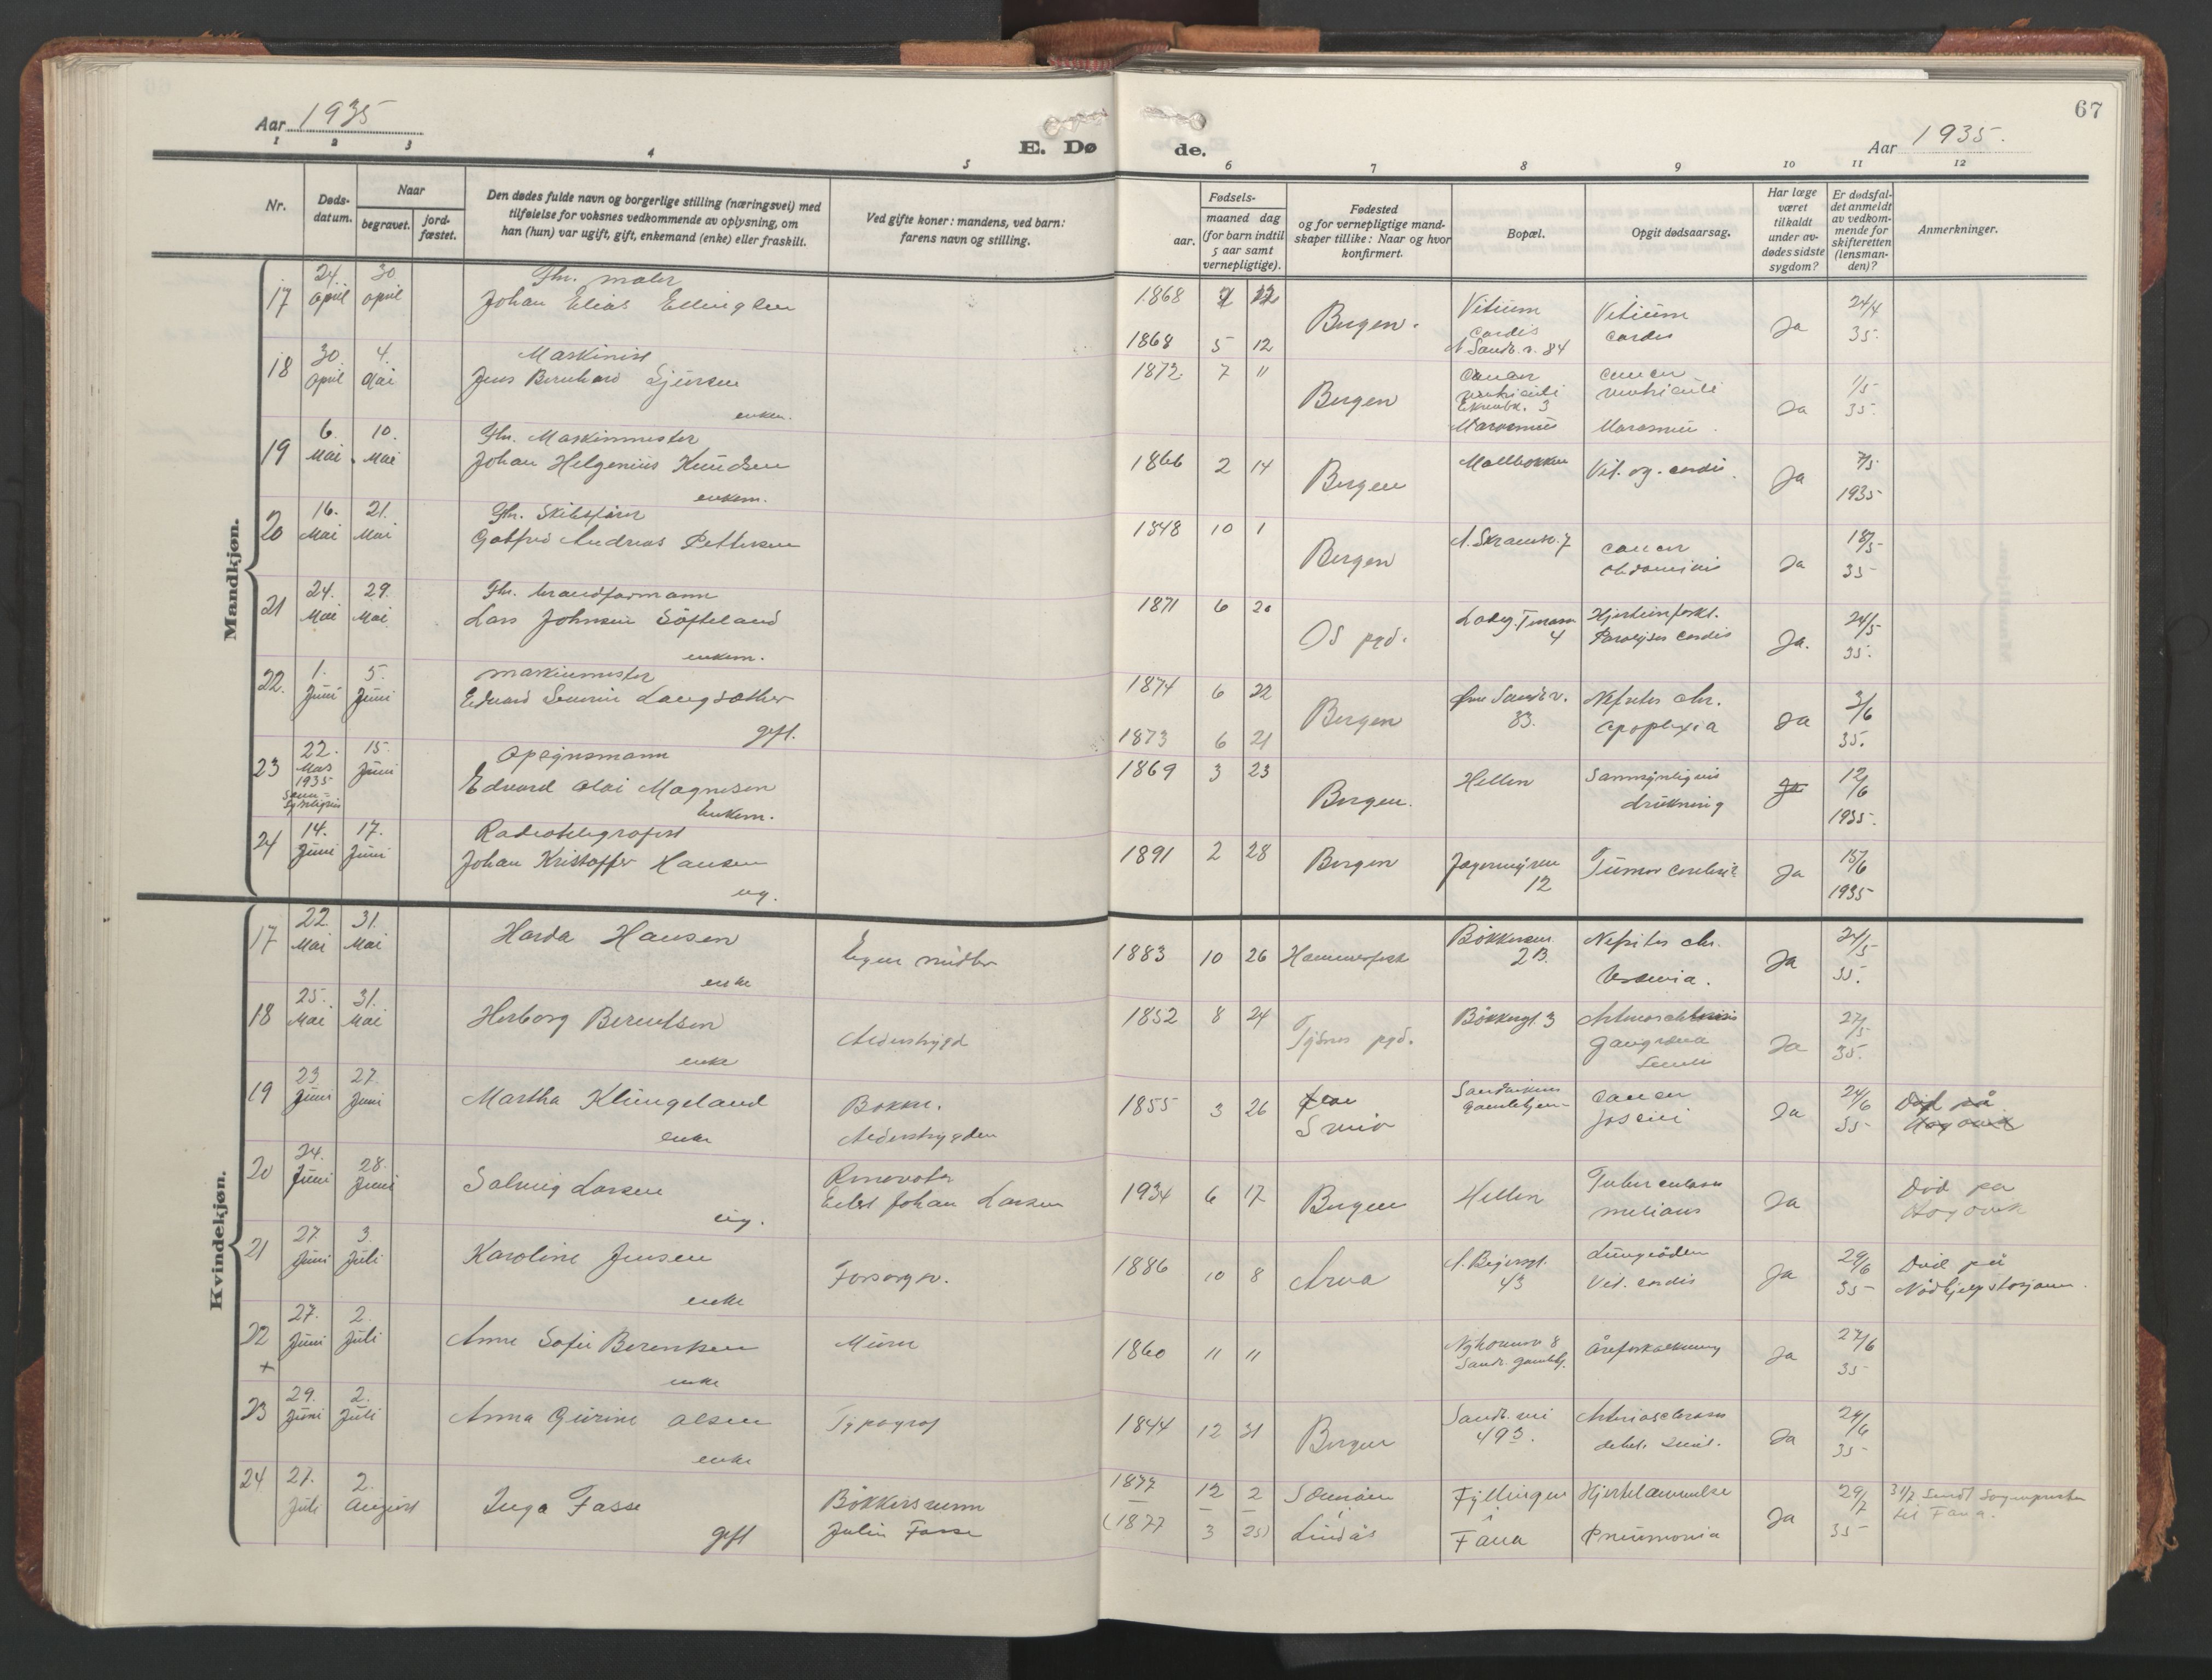 67
Aar 1935
E. Dø de.
Aar 1935.
1 2 3 4 5 6 7 8 9 10 11 12
Nr.
Døds-
datum.
Naar
begravet.
jord-
fæstet.
Den dødes fulde navn og borgerlige stilling (næringsvei) med
tilføielse for voksnes vedkommende av oplysning, om
han (hun) var ugift, gift, enkemand (enke) eller fraskilt.
Ved gifte koner: mandens, ved barn:
farens navn og stilling.
Fødsels-
aar.
maaned dag
(for barn indtil
5 aar samt
vernepligtige).
Fødested
og for vernepligtige mand-
skaper tillike: Naar og hvor
konfirmert.
Bopæl.
Opgit dødsaarsag.
Har læge
været
tilkaldt
under av-
dødes sidste
sygdom?
Er dødsfal-
det anmeldt
av vedkom-
mende for
skifteretten
(lensman-
den)?
Anmerkninger.
Mandkjøn.
17 24. April 30 April
Fhv. maler
Johan Elias Ellingsen
1868 12
1868 5 12
Bergen.
Vitium
Cordis
N. Sandv. v. 84
Vitium
Cordis
Ja
24/4
35.
18 30. April 4. Mai
Maskinist
Jens Bernhard Sjursen
enkem.
1872. 7 11
Bergen
Cancer
ventriculi
3
Marasmus
Cancer
ventriculi
Marasmus.
Ja
1/5
35.
19 6. Mai 10. Mai
Fhv. Maskinmester
Johan Helgenius Knudsen
enkem.
1866 2 14
Bergen
Møllbakken
Vit. og. cordis.
Ja
7/5
1935
20 16. Mai 21. Mai
Fhv. Skibsfører
Gotfred Andreas Pettersen
1848 10 1
Bergen
N. Skramsv. 7
cancer
abdominis
Ja
18/5
35
21 24. Mai 29. Mai
Fhv. brandformann
Lars Johnsen Söfteland
enkem.
1871 6 20
Os pgd.
Ladeg. Terasse
4
Hjerteinfarkt.
Paralysis Cordis
Ja.
24/5
35.
22. 1. Juni 5. Juni
maskinmester
Edvard Severin Langsæther
gift.
1874 6 22
1873 6 21
Bergen
Øvre Sandv. v.
83.
Nefritis chr.
Apoplexia
Ja
3/6
35.
23 22. Mars 1935 Sann-synligvis 15. Juni
Opsynsmann
Edvard Olai Magnesen
Enkem.
1869 3 23
Bergen.
Hellen
Sannsynligvis
drukning
Ja
12/6
1935.
24 14. Juni 17. Juni
Radiotelegrafist
Johan Kristoffer Hansen
ug.
1891 2 28
Bergen
Jægermyren
12
Tumor Cerebri?
Ja
15/6
1935
Kvindekjøn.
17 22. Mai 31. Mai
Harda Hansen
enke
Egne midler
1883 10 26
Hammerfest
2B.
Nefritis chr.
Uremia.
Ja
24/5
35.
18 25. Mai 31. Mai
Herborg Berentsen
enke
Alderstrygd
1852 8 24
Tysnes pgd.
Bökkergt. 3
Arteriosclerosis
Gangræna
Senilis
Ja
27/5
35.
19 23. Juni 27. Juni
Martha Klungeland
enke
Bøkker.
Alderstrygden
1855 3 26
Sandvikens
Gamlehjem
cancer
Ja
24/6
35
Død på
20 24. Juni 28. Juni
Solveig Larsen
ug.
Renovatør
Johan Larsen
1934 6 17
Bergen
Hellen
Tuberculosis
miliaris
Ja
Död på
21 27. Juni 3. Juli
Karoline Jensen
enke
Forsorgsv.
1886 10 8
Arna
43
Lungeödem
Vit. cordis
Ja
29/6
35
Död på
22 + 27. Juni 2. Juli
Anne Sofie Berentsen
enke
Murer
1860 11 11
8
Sandv. gamlehj.
Åreforkalkning
Ja
27/6
35
23 29. Juni 2. Juli
Anna Gurine Olsen
enke
Typograf
1844 12 31
Bergen
Sandv. vei
49 3.
Arteriosclerosis
debil. senil.
Ja
29/6
35
24 27. Juli 2. August
Inga Fasse
gift
Bökkersvenn
Julius Fasse
1877 12 2
(1877 3 25)
Lindås
Fyllingen
Fana
Hjertelammelse
Pneumonia
Ja
29/7
35
31/7 Sendt Sognepresten
til Fana.